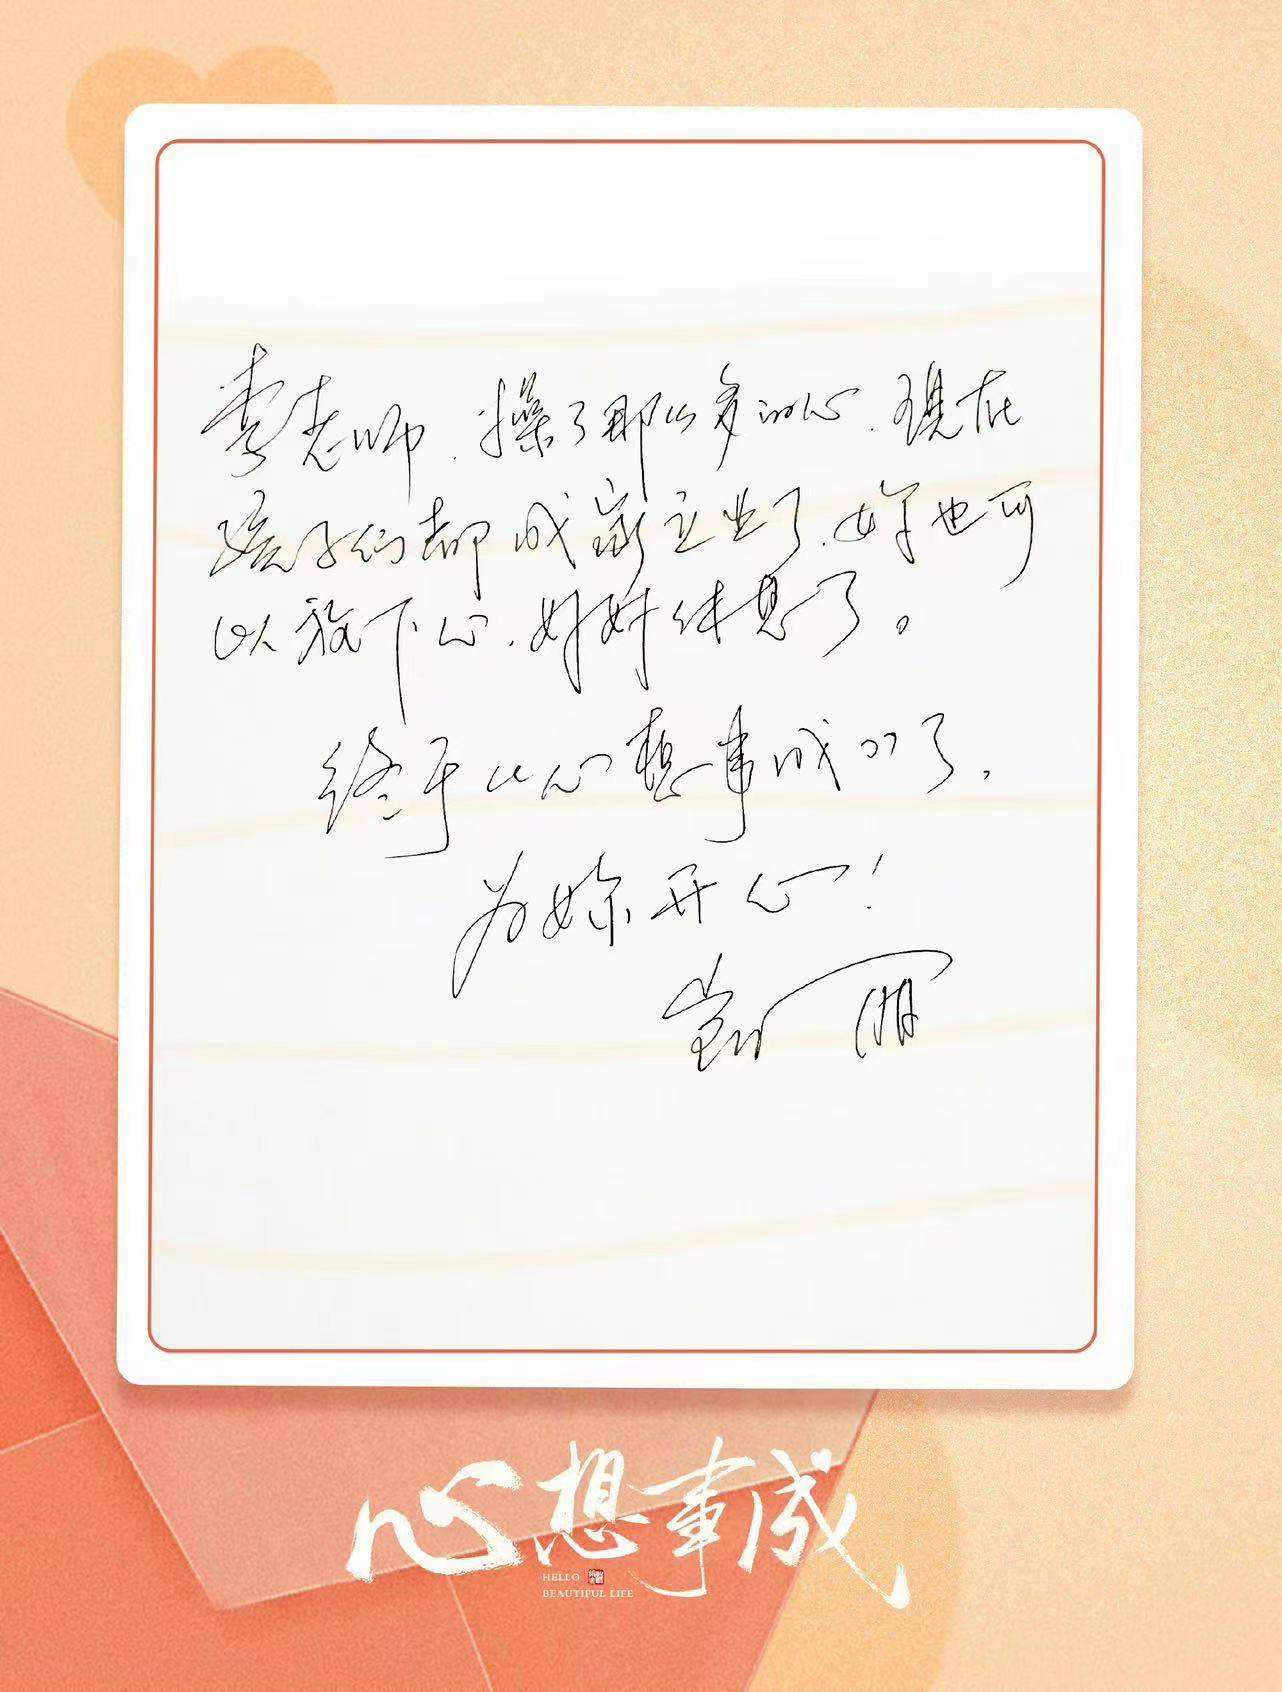 李老师，操了那么多的心，现在
孩子们都成家立业了，妳也可
以放下心，好好休息了。
终于“心想事成”了，
为妳开心！
心想事成
HELLO
BEAUTIFUL LIFE